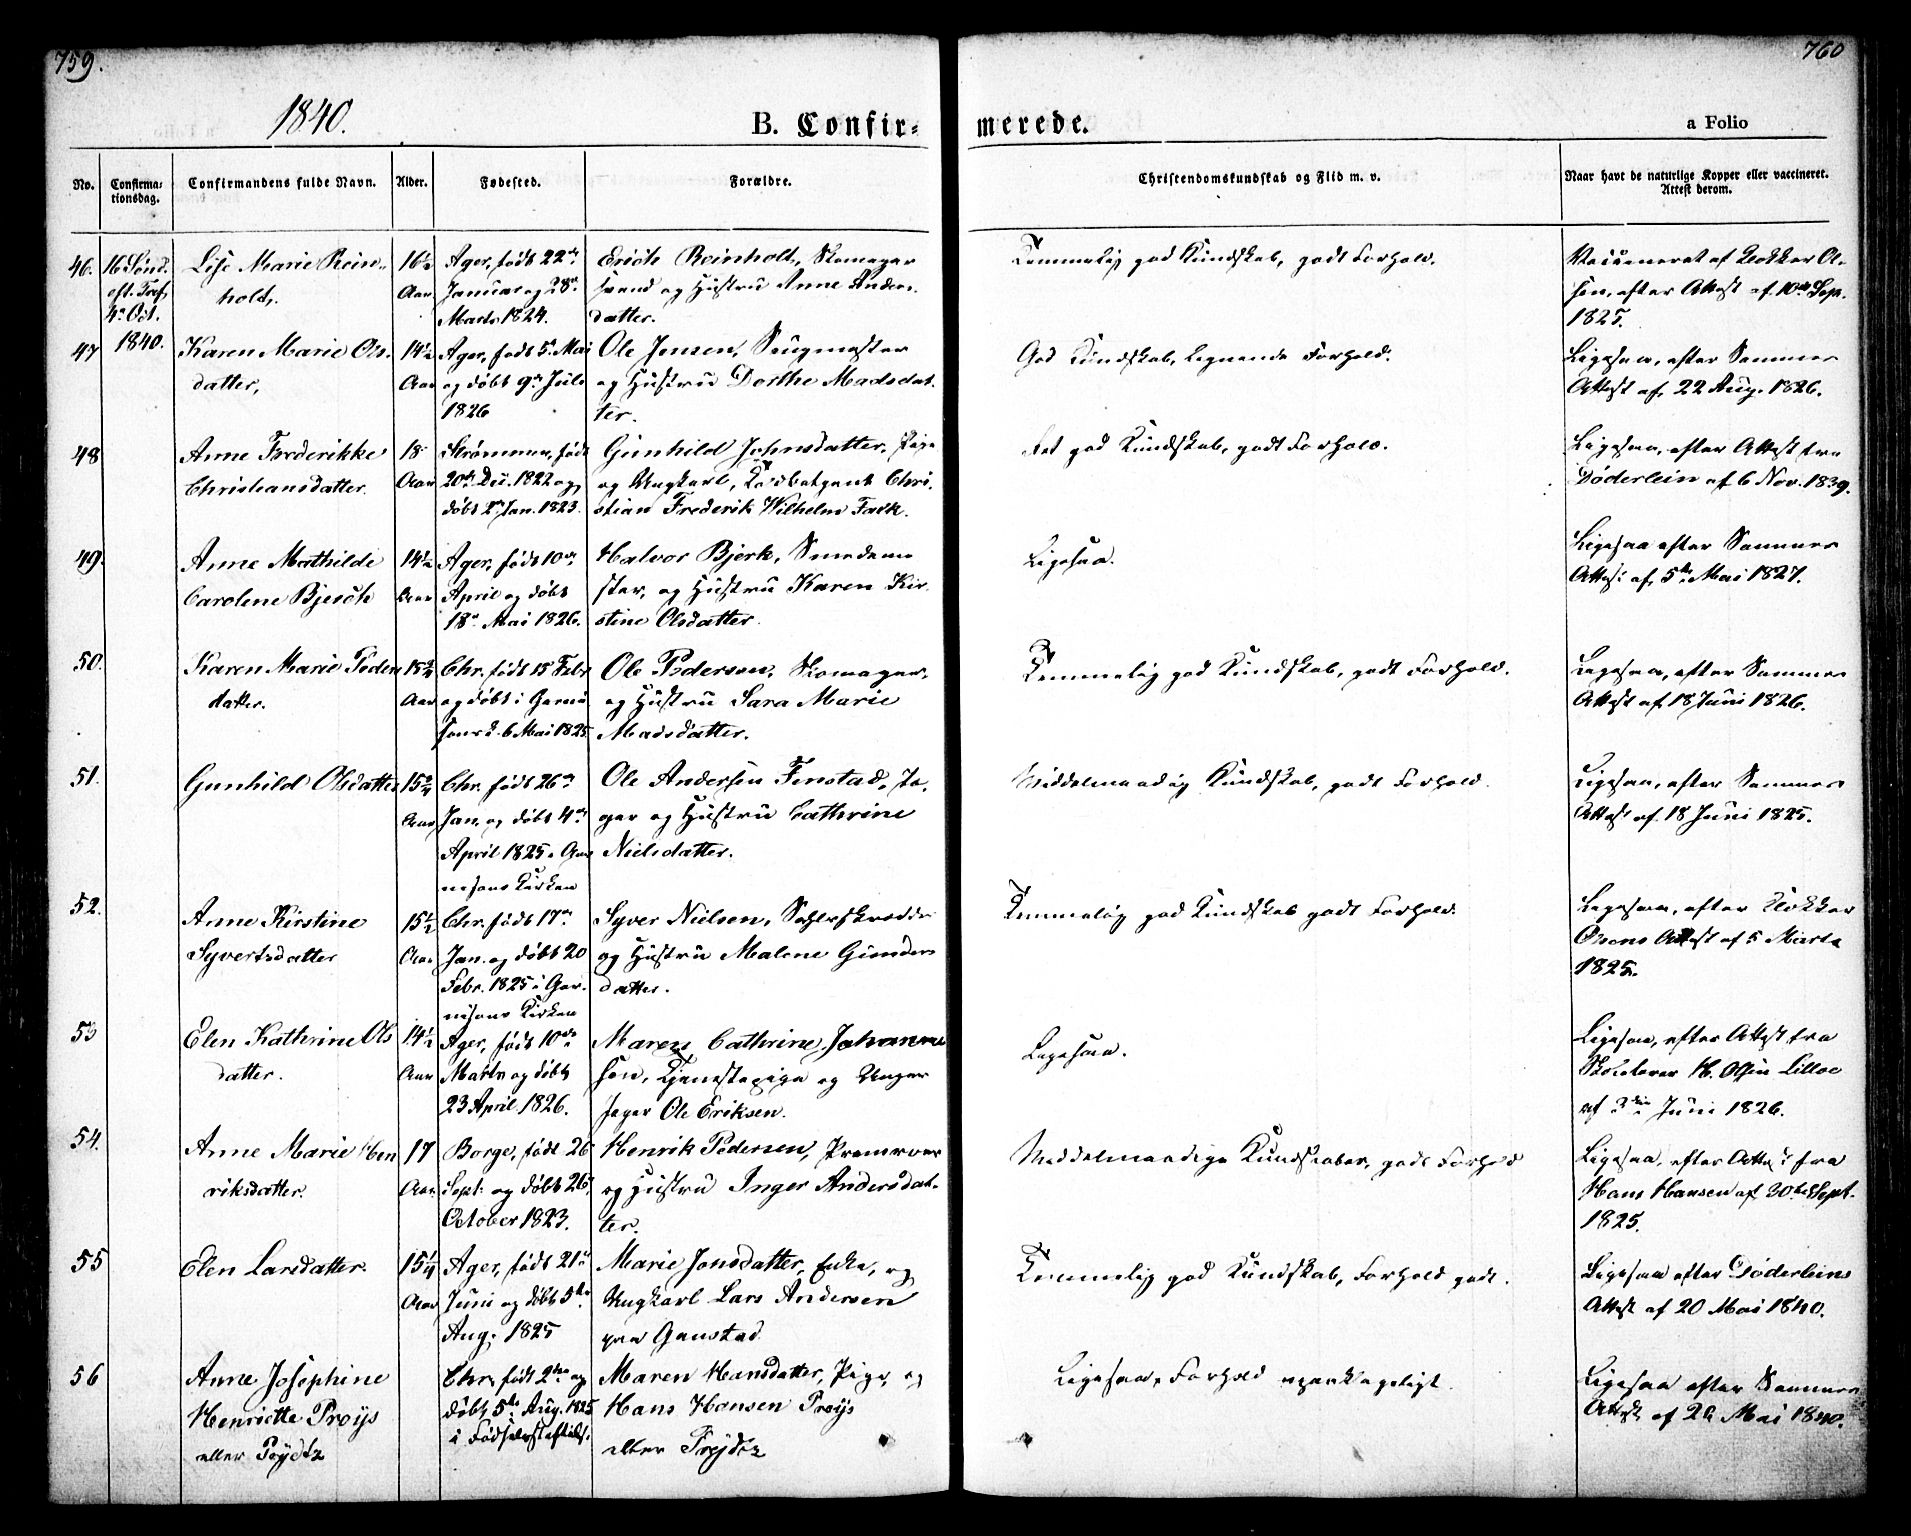 759.
760
1840.
B. Confir-
merede.
a Folio
No.
Confirma-
tionsdag.
Confirmandens fulde Navn.
Alder.
Fødested.
Forældre.
Christendomskundskab og Flid m. v.
Naar havt de naturlige Kopper eller vaccineret.
Attest derom.
46.
16 Sønd.
eft. Tref.
4de Oct.
1840.
Lise Marie Rein-
hold,
16½
Aar
Ager, født 22de
Januar og 28de
Marts 1824.
Erich Reinholt, Skomager
svend og Hustru Anne Anders
datter.
Temmelig god Kundskab, godt Forhold.
Vaccineret af Klokker Ol-
sen, efter Attest af 10de Sep.
1825.
47
Karen Marie Ols-
datter,
14½
Aar
Ager, født 5te Mai
og døbt 9de Juli
1826
Ole Jensen, Saugmester
og Hustru Dorthe Madsdat-
ter.
God Kundskab, Forhold.
Ligesaa, efter Sammes
Attest af 22 Aug. 1826.
48
Anne Frederikke
Christiansdatter.
18
Aar
Strømmen, født
20de Dec. 1822 og
døbt 2den Jan. 1823.
Gunhild Johnsdatter, Pige
og Ungkarl, Chri-
stian Frederik Wilhelm Falk.
Ret god Kundskab, godt Forhold.
Ligesaa, efter Attest fra
Døderlein af 6 Nov. 1839.
49.
Anne Mathilde
Carolene Bjerch
14½
Aar
Ager, født 10de
April og døbt
18de Mai 1826.
Halvor Bjerk, Smedeme
ster, og Hustru Karen Kir-
stine Olsdatter.
Ligesaa.
Ligesaa efter Sammes
Attest af 5te Mai 1827.
50.
Karen Marie Peders
datter.
15¾
Aar
Chr. født 15 Febr
og døbt i Garni
sons d. 6 Mai 1825
Ole Pedersen, Skomager,
og Hustru Sara Marie
Madsdatter.
Temmelig god Kundskab, godt Forhold.
Ligesaa, efter Sammes
Attest af 18 Juni 1826.
51.
Gunhild Olsdatter
15¾
Aar
Chr. født 26de
Jan. og døbt 4de
April 1825 i Gar
nisons Kirken
Ole Andersen Finstad, Ja-
ger og Hustru Cathrine
Nielsdatter.
Middelmaadig Kundskab, godt Forhold.
Ligesaa, efter Sammes
Attest af 18 Juni 1825.
52.
Anne Kirstine
Syvertsdatter
15½
Aar
Chr. født 17de
Jan. og døbt 20
Febr. 1825 i Gar-
nisons Kirken
Syver Nielsen,
og Hustru Malene Gunders
datter.
Temmelig god Kundskab godt Forhold.
Ligesaa, efter Klokker
Olsens Attest af 5 Marts
1825.
53
Elen Kathrine Ols
datter.
14½
Aar
Ager, født 10de
Marts og døbt
23 April 1826.
Maren Cathrine Johanne
sen, Tjenestepige og Ungkar
Jager Ole Eriksen.
Ligesaa.
Ligesaa, efter Attest fra
Skolelærer H. Olsen Lilloe
af 3die Juni 1826.
54.
Anne Marie Hen
riksdatter.
17
Aar
Borge, født 26
Sept. og døbt 26
October 1823.
Henrik Pedersen,
og Hustru Inger Andersdat-
ter.
Middelmaadige Kundskaber, godt Forhold
Ligesaa, efter Attest fra
Hans Hansen af 30te Sept.
1825.
55
Elen Larsdatter.
15¼
Aar
Ager, født 21de
Juni og døbt 5te
Aug. 1825
Marie Jonsdatter, Enke, og
Ungkarl Lars Andersen
paa Gaustad.
Temmelig god Kundskab, Forhold godt.
Ligesaa efter Døderleins
Attest af 20 Mai 1840.
56
Anne Josephine
Henriette Prøys
eller Prøydtz
Chr. født 2den og
døbt 5te Aug. 1825
i Fødselsstiftels.
Maren Hansdatter, Pige, og
Hans Hansen Prøys
eller Prøydtz
Ligesaa, Forhold upaaklageligt.
Ligesaa efter Sammes
Attest af Mai 1840.